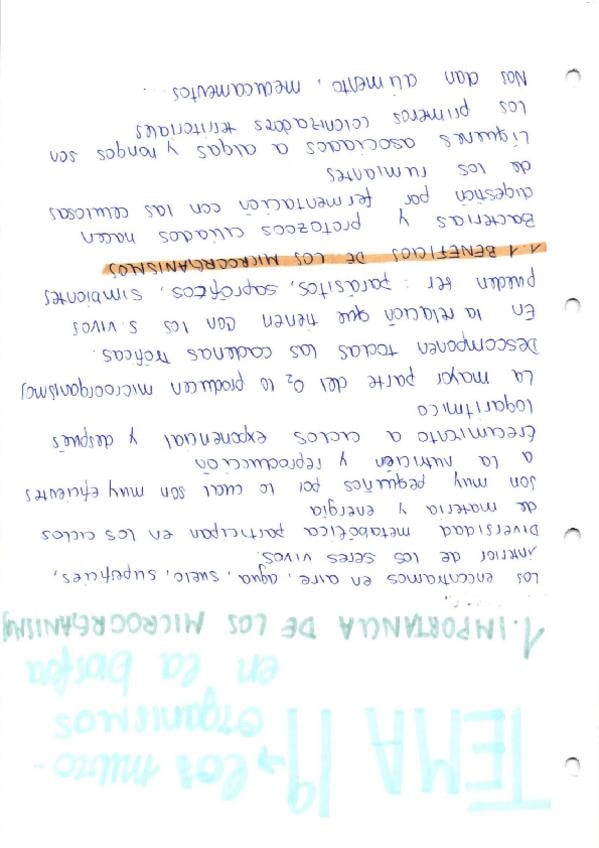 TEMA 19 → los micro-
organismos
en la biosfera
1. IMPORTANCIA DE LOS MICROORGANISMOS
Los encontramos en aire, agua, suelo, superficies,
interior de los seres vivos.
Diversidad metabólica participan en los ciclos
de materia y energía
Son muy pequeños por lo cual son muy eficientes
a la nutrición y reproducción
Crecimiento a ciclos exponencial y después
logarítmico
La mayor parte del O2 lo producen microorganismos
Descomponen todas las cadenas tróficas.
En la relación que tienen con los s. vivos
pueden ser: parásitos, saprófitos, simbiontes
1.1 BENEFICIOS DE LOS MICROORGANISMOS
Bacterias y protozoos ciliados hacen
digestión por fermentación con las celulosas
de los rumiantes
Líquenes asociados a algas y hongos son
los primeros colonizadores territoriales
Nos dan alimento, medicamentos...